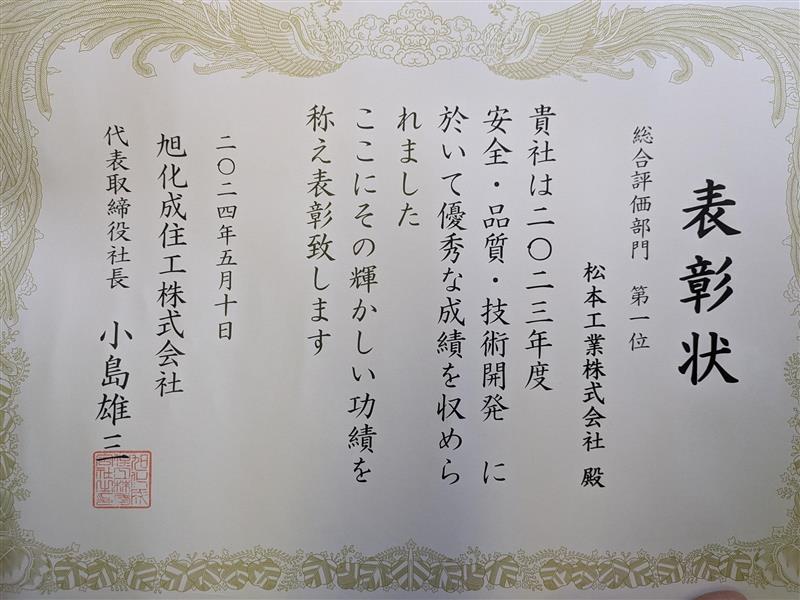 表彰状
総合評価部門 第一位
松本工業株式会社 殿
貴社は二〇二三年度
安全・品質・技術開発 に
於いて優秀な成績を収めら
れました
ここにその輝かしい功績を
称え表彰致します
二〇二四年五月十日
旭化成住工株式会社
代表取締役社長 小島雄三